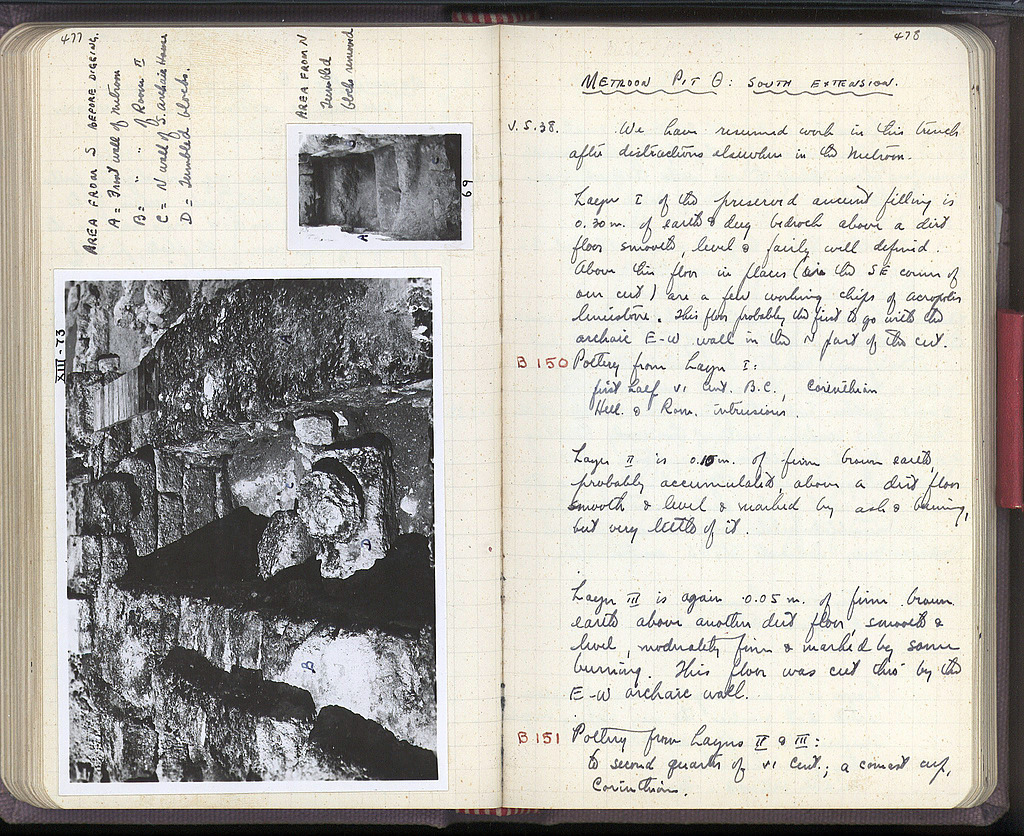 477
AREA FROM S BEFORE DIGGING.
A = Front wall of Metroon
B = " " of Room II
C = N wall of S. archaic House
D = Tumbled blocks.
AREA FROM N
Tumbled
blocks removed
69
A
XIII-73
A
C
D
B
478
METROON PIT Θ: SOUTH EXTENSION.
V.5.38. We have resumed work in this trench
after distractions elsewhere in the Metroon.
Layer I of the preserved ancient filling is
0.20 m. of earth & dug bedrock above a dirt
floor smooth, level & fairly well defined.
Above this floor in places (in the SE corner of
our cut) are a few working chips of acropolis
limestone. This floor probably the first to go with the
archaic E-W wall in the N part of the cut.
B 150 Pottery from Layer I:
first half VI cent. B.C., Corinthian
Hell. & Rom. intrusions.
Layer II is 0.10 m. of firm brown earth,
probably accumulated above a dirt floor
smooth & level & marked by ash & burning,
but very little of it.
Layer III is again 0.05 m. of firm brown
earth above another dirt floor smooth &
level, moderately firm & marked by some
burning. This floor was cut thro' by the
E-W archaic wall.
B 151 Pottery from Layers II & III:
to second quarter of VI cent.; a comast cup,
Corinthian.